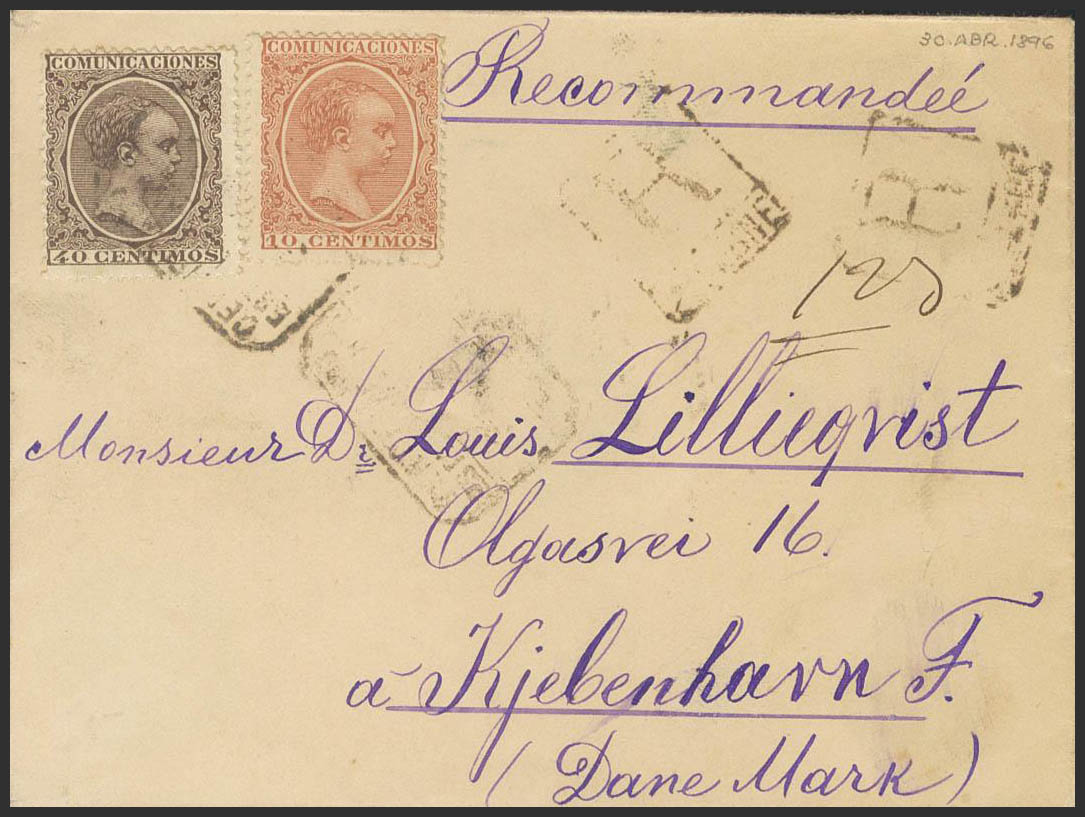 30.ABR.1896
COMUNICACIONES
40 CENTIMOS
COMUNICACIONES
10 CENTIMOS
Recommandeé
R
R
123
Monsieur Dr. Louis Lillieqvist
Olgasvei 16.
à Kjebenhavn F.
(Dane Mark)